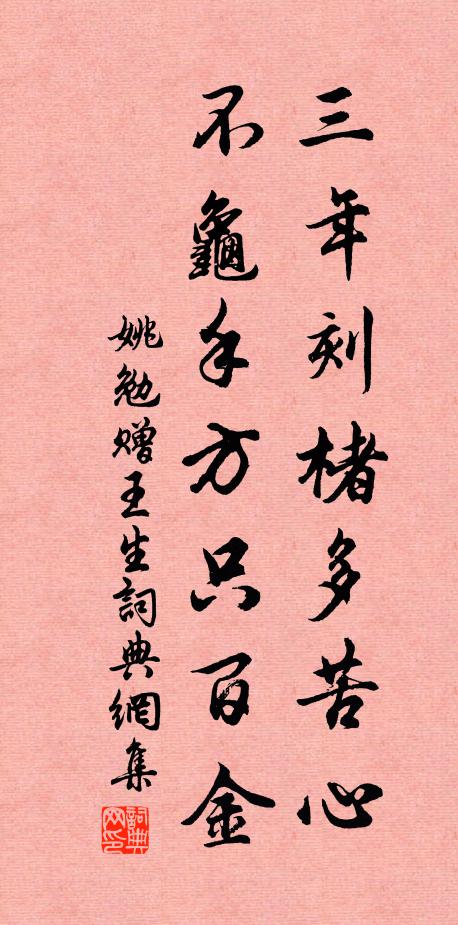 三年刻楮多苦心
不龜手方只百金
姚勉贈王生詞典網集
詞典网印